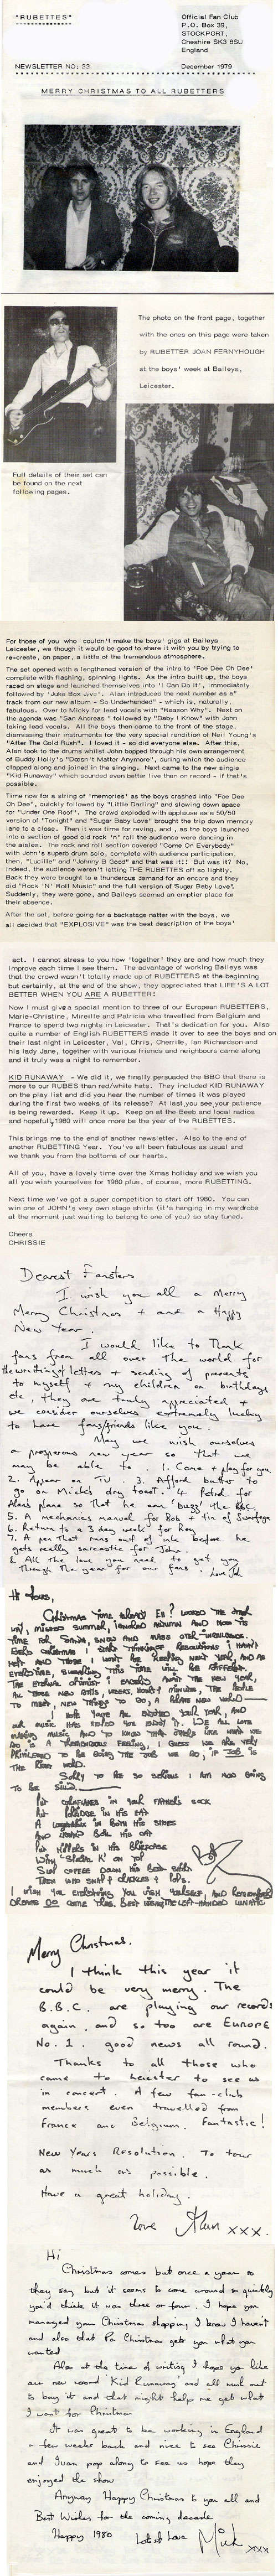 "RUBETTES"
Official Fan Club
P.O. Box 39,
STOCKPORT,
Cheshire SK3 8SU
England
NEWSLETTER NO: 23
December 1979
MERRY CHRISTMAS TO ALL RUBETTERS
The photo on the front page, together
with the ones on this page were taken
by RUBETTER JOAN FERNYHOUGH
at the boys' week at Baileys,
Leicester.
Full details of their set can
be found on the next
following pages.
For those of you who couldn't make the boys' gigs at Baileys
Leicester, we though it would be good to share it with you by trying to
re-create, on paper, a little of the tremendous atmosphere.
The set opened with a lengthened version of the intro to 'Foe Dee Oh Dee'
complete with flashing, spinning lights. As the intro built up, the boys
raced on stage and launched themselves into 'I Can Do It', immediately
followed by 'Juke Box Jive'. Alan introduced the next number as a'
track from our new album - So Underhanded' - which is, naturally,
fabulous. Over to Micky for lead vocals with "Reason Why". Next on the
agenda was "San Andreas" followed by "Baby I Know" with John
taking lead vocals. All the boys then came to the front of the stage,
dismissing their instruments for a very special rendition of Neil Young's
"After The Gold Rush". I loved it - and so did everyone else. After this,
Alan took to the drums whilst John bopped through his own arrangement
of Buddy Holly's "Doesn't Matter Anymore", during which the audience
clapped along and joined in the singing. Next came to the new single
"Kid Runaway" which sounded even better live than on record - if that's
possible.
Time now for a string of 'memories' as the boys crashed into "Foe Dee
Oh Dee", quickly followed by "Little Darling" and slowing down apace
for "Under One Roof". The crowd exploded with applause as a 50/50
version of "Tonight" and "Sugar Baby Love" brought the trip down memory
lane to a close. Then it was time for raving, and , as the boys launched
into a section of good old rock 'n' roll the audience were dancing in
the aisles. The rock and roll section covered "Come On Everybody"
with John's superb drum solo, complete with audience participation,
then, "Lucille" and "Johnny B Good" and that was it!! But was it? No,
indeed, the audience weren't letting THE RUBETTES off so lightly.
Back they were brought to a thunderous demand for an encore and they
did "Rock 'N' Roll Music" and the full version of 'Sugar Baby Love".
Suddenly, they were gone, and Baileys seemed an emptier place for
their absence.
After the set, before going for a backstage natter with the boys, we
all decided that "EXPLOSIVE" was the best description of the boys'
act. I cannot stress to you how 'together' they are and how much they
improve each time I see them. The advantage of working Baileys was
that the crowd wasn't totally made up of RUBETTERS at the beginning
but certainly, at the end of the show, they appreciated that LIFE'S A LOT
BETTER WHEN YOU ARE A RUBETTER!
Now I must give a special mention to three of our European RUBETTERS,
Marie-Christine, Mireille and Patricia who travelled from Belgium and
France to spend two nights in Leicester. That's dedication for you. Also
quite a number of English RUBETTERS made it over to see the boys and on
their last night in Leicester, Val, Chris, Cherrille, Ian Richardson and
his lady Jane, together with various friends and neighbours came along
and it truly was a night to remember.
KID RUNAWAY - We did it, we finally persuaded the BBC that there is
more to our RUBES than red/white hats. They included KID RUNAWAY
on the play list and did you hear the number of times it was played
during the first two weeks of its release? At last you see your patience
is being rewarded. Keep it up. Keep on at the Beeb and local radios
and hopefully 1980 will once more be the year of the RUBETTES.
This brings me to the end of another newsletter. Also to the end of
another RUBETTING Year. You've all been fabulous as usual and
we thank you from the bottoms of our hearts.
All of you, have a lovely time over the Xmas holiday and we wish you
all you wish yourselves for 1980 plus, of course, more RUBETTING.
Next time we've got a super competition to start off 1980. You can
win one of JOHN's very own stage shirts (it's hanging in my wardrobe
at the moment just waiting to belong to one of you) so stay tuned.
Cheers
CHRISSIE
Dearest Fansters
I wish you all a Merry
Merry Christmas + and a Happy
New Year
I would like to Thank
fans from all over the world for
the writing of letters + sending of presents
to myself + my children on birthdays
etc, they are truly appreciated +
we consider ourselves extremely lucky
to have fans/friends like you.
May we wish ourselves
a prosperous new year so that we
may be able to 1. Come + play for you.
2. Appear on TV. 3. Afford butter to
go on Mick's dry toast. 4. Petrol for
Alan's plane so that he can 'buzz' the BBC.
5. A mechanics manual for Bob + tin of Swarfega
6. Return to a 3 day week for Ray
7. A pen that runs out of ink before he
gets really sarcastic for John.
8. All the love you need to get you
through the year for our fans. Love John
Hi Loves,
Christmas time already Eh?
Sorry to be so serious I am also going
to be silly.
Put in your father's sock
Put porridge in his hat
A in both his shoes
And his cat
Put kippers in his briefcase
With 'Special K' on top
Then who snaps crackles + pops.
I wish you everything you wish yourself, and remember
dreams do come true. Best wishes the left-handed lunatic
Merry Christmas.
I think this year it
could be very merry. The
B.B.C. are playing our records
again, and so too are EUROPE
No. 1. good news all round.
Thanks to all those who
came to Leicester to see us
in concert. A few fan-club
members even travelled from
France and Belgium. Fantastic!
New Years Resolution. To tour
as much as possible.
Have a great holiday.
love Alan xxx.
Hi
Christmas comes but once a year so
they say but it seems to come around so quickly
you'd think it was three or four. I hope you
managed your Christmas shopping I know I haven't
and also that Pa Christmas gets you what you
wanted
Also at the time of writing I hope you like
our new record 'Kid Runaway' and all rush out
to buy it and that might help me get what
I want for Christmas
It was great to be working in England
a few weeks back and nice to see Chrissie
and Ivan pop along to see us hope they
enjoyed the show
Anyway Happy Christmas to you all and
Best Wishes for the coming decade
Happy 1980 Lots of Love Mick xxx